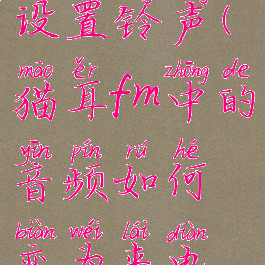 设置铃声(
māo ěr zhōng de
猫耳fm中的
yīn pín rú hé
音频如何
biàn wéi lái diàn
变为来电